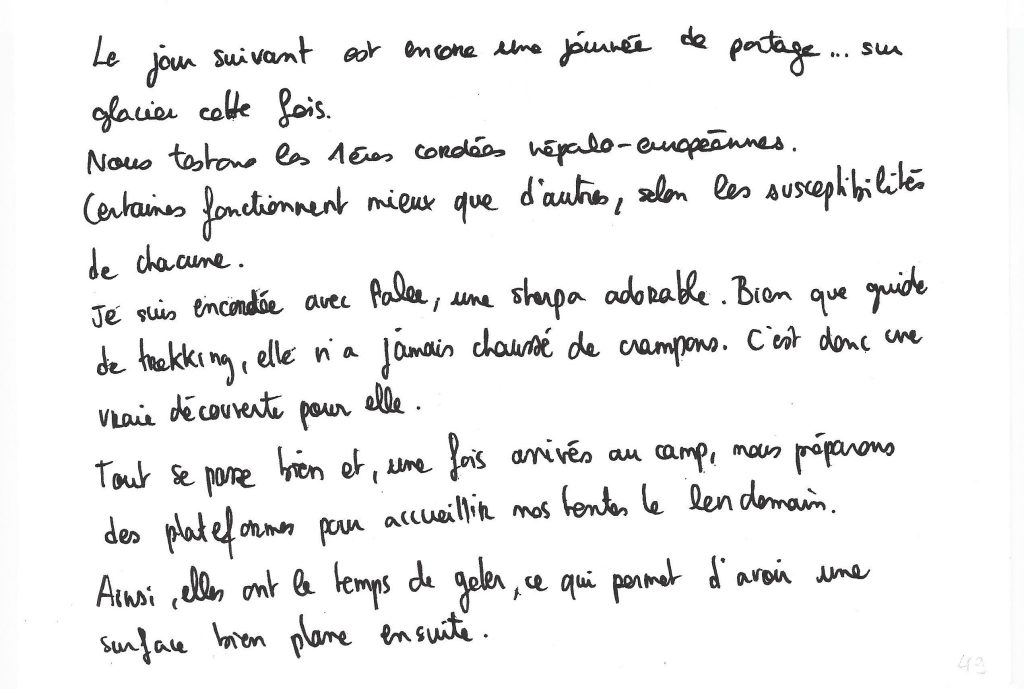 Le jour suivant est encore une journée de portage... sur
glacier cette fois.
Nous testons les 1ères cordées népalo-européennes.
Certaines fonctionnent mieux que d'autres, selon les susceptibilités
de chacune.
Je suis encordée avec Palee, une sherpa adorable. Bien que guide
de trekking, elle n'a jamais chaussé de crampons. C'est donc une
vraie découverte pour elle.
Tout se passe bien et, une fois arrivés au camp, nous préparons
des plateformes pour accueillir nos tentes le lendemain.
Ainsi, elles ont le temps de geler, ce qui permet d'avoir une
surface bien plane ensuite.
49